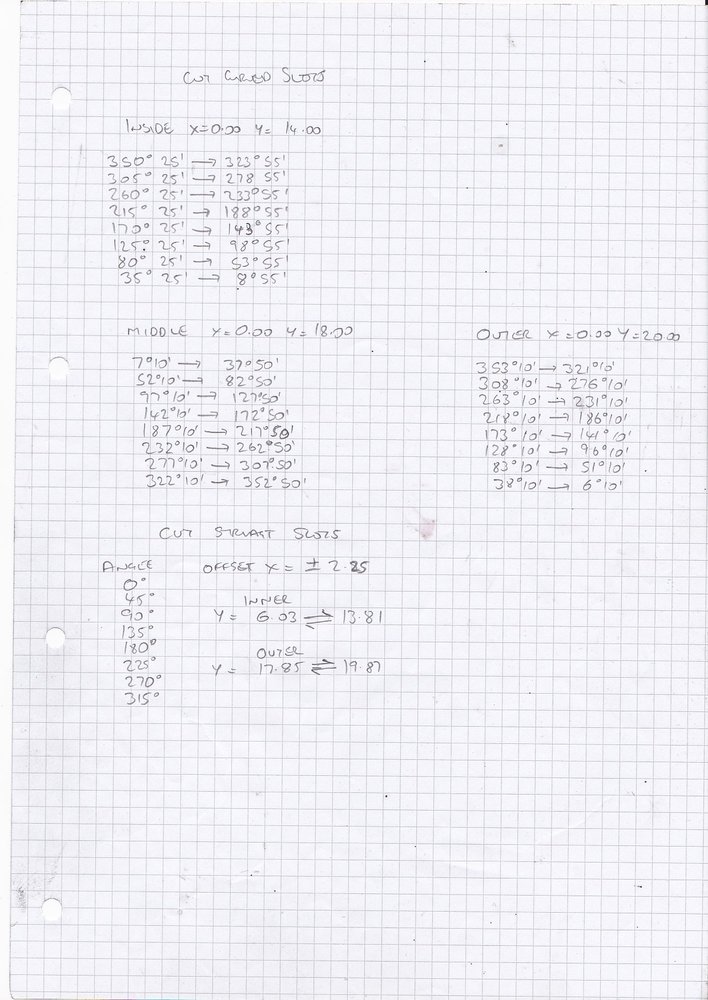 CUT CURVED SLOTS
INSIDE X=0.00 Y= 14.00
350° 25' → 323° 55'
305° 25' → 278 55'
260° 25' → 233° 55'
215° 25' → 188° 55'
170° 25' → 143° 55'
125° 25' → 98° 55'
80° 25' → 53° 55'
35° 25' → 8° 55'
MIDDLE X=0.00 Y=18.00
7°10' → 37°50'
52°10' → 82°50'
97°10' → 127°50'
142°10' → 172°50'
187°10' → 217°50'
232°10' → 262°50'
277°10' → 307°50'
322°10' → 352°50'
OUTER X=0.00 Y=20.00
353°10' → 321°10'
308°10' → 276°10'
263°10' → 231°10'
218°10' → 186°10'
173°10' → 141°10'
128°10' → 96°10'
83°10' → 51°10'
38°10' → 6°10'
CUT STRIART SLOTS
ANGLE
0°
45°
90°
135°
180°
225°
270°
315°
OFFSET X = ± 2.25
INNER
Y = 6.03 ⇌ 13.81
OUTER
Y = 17.85 ⇌ 19.87